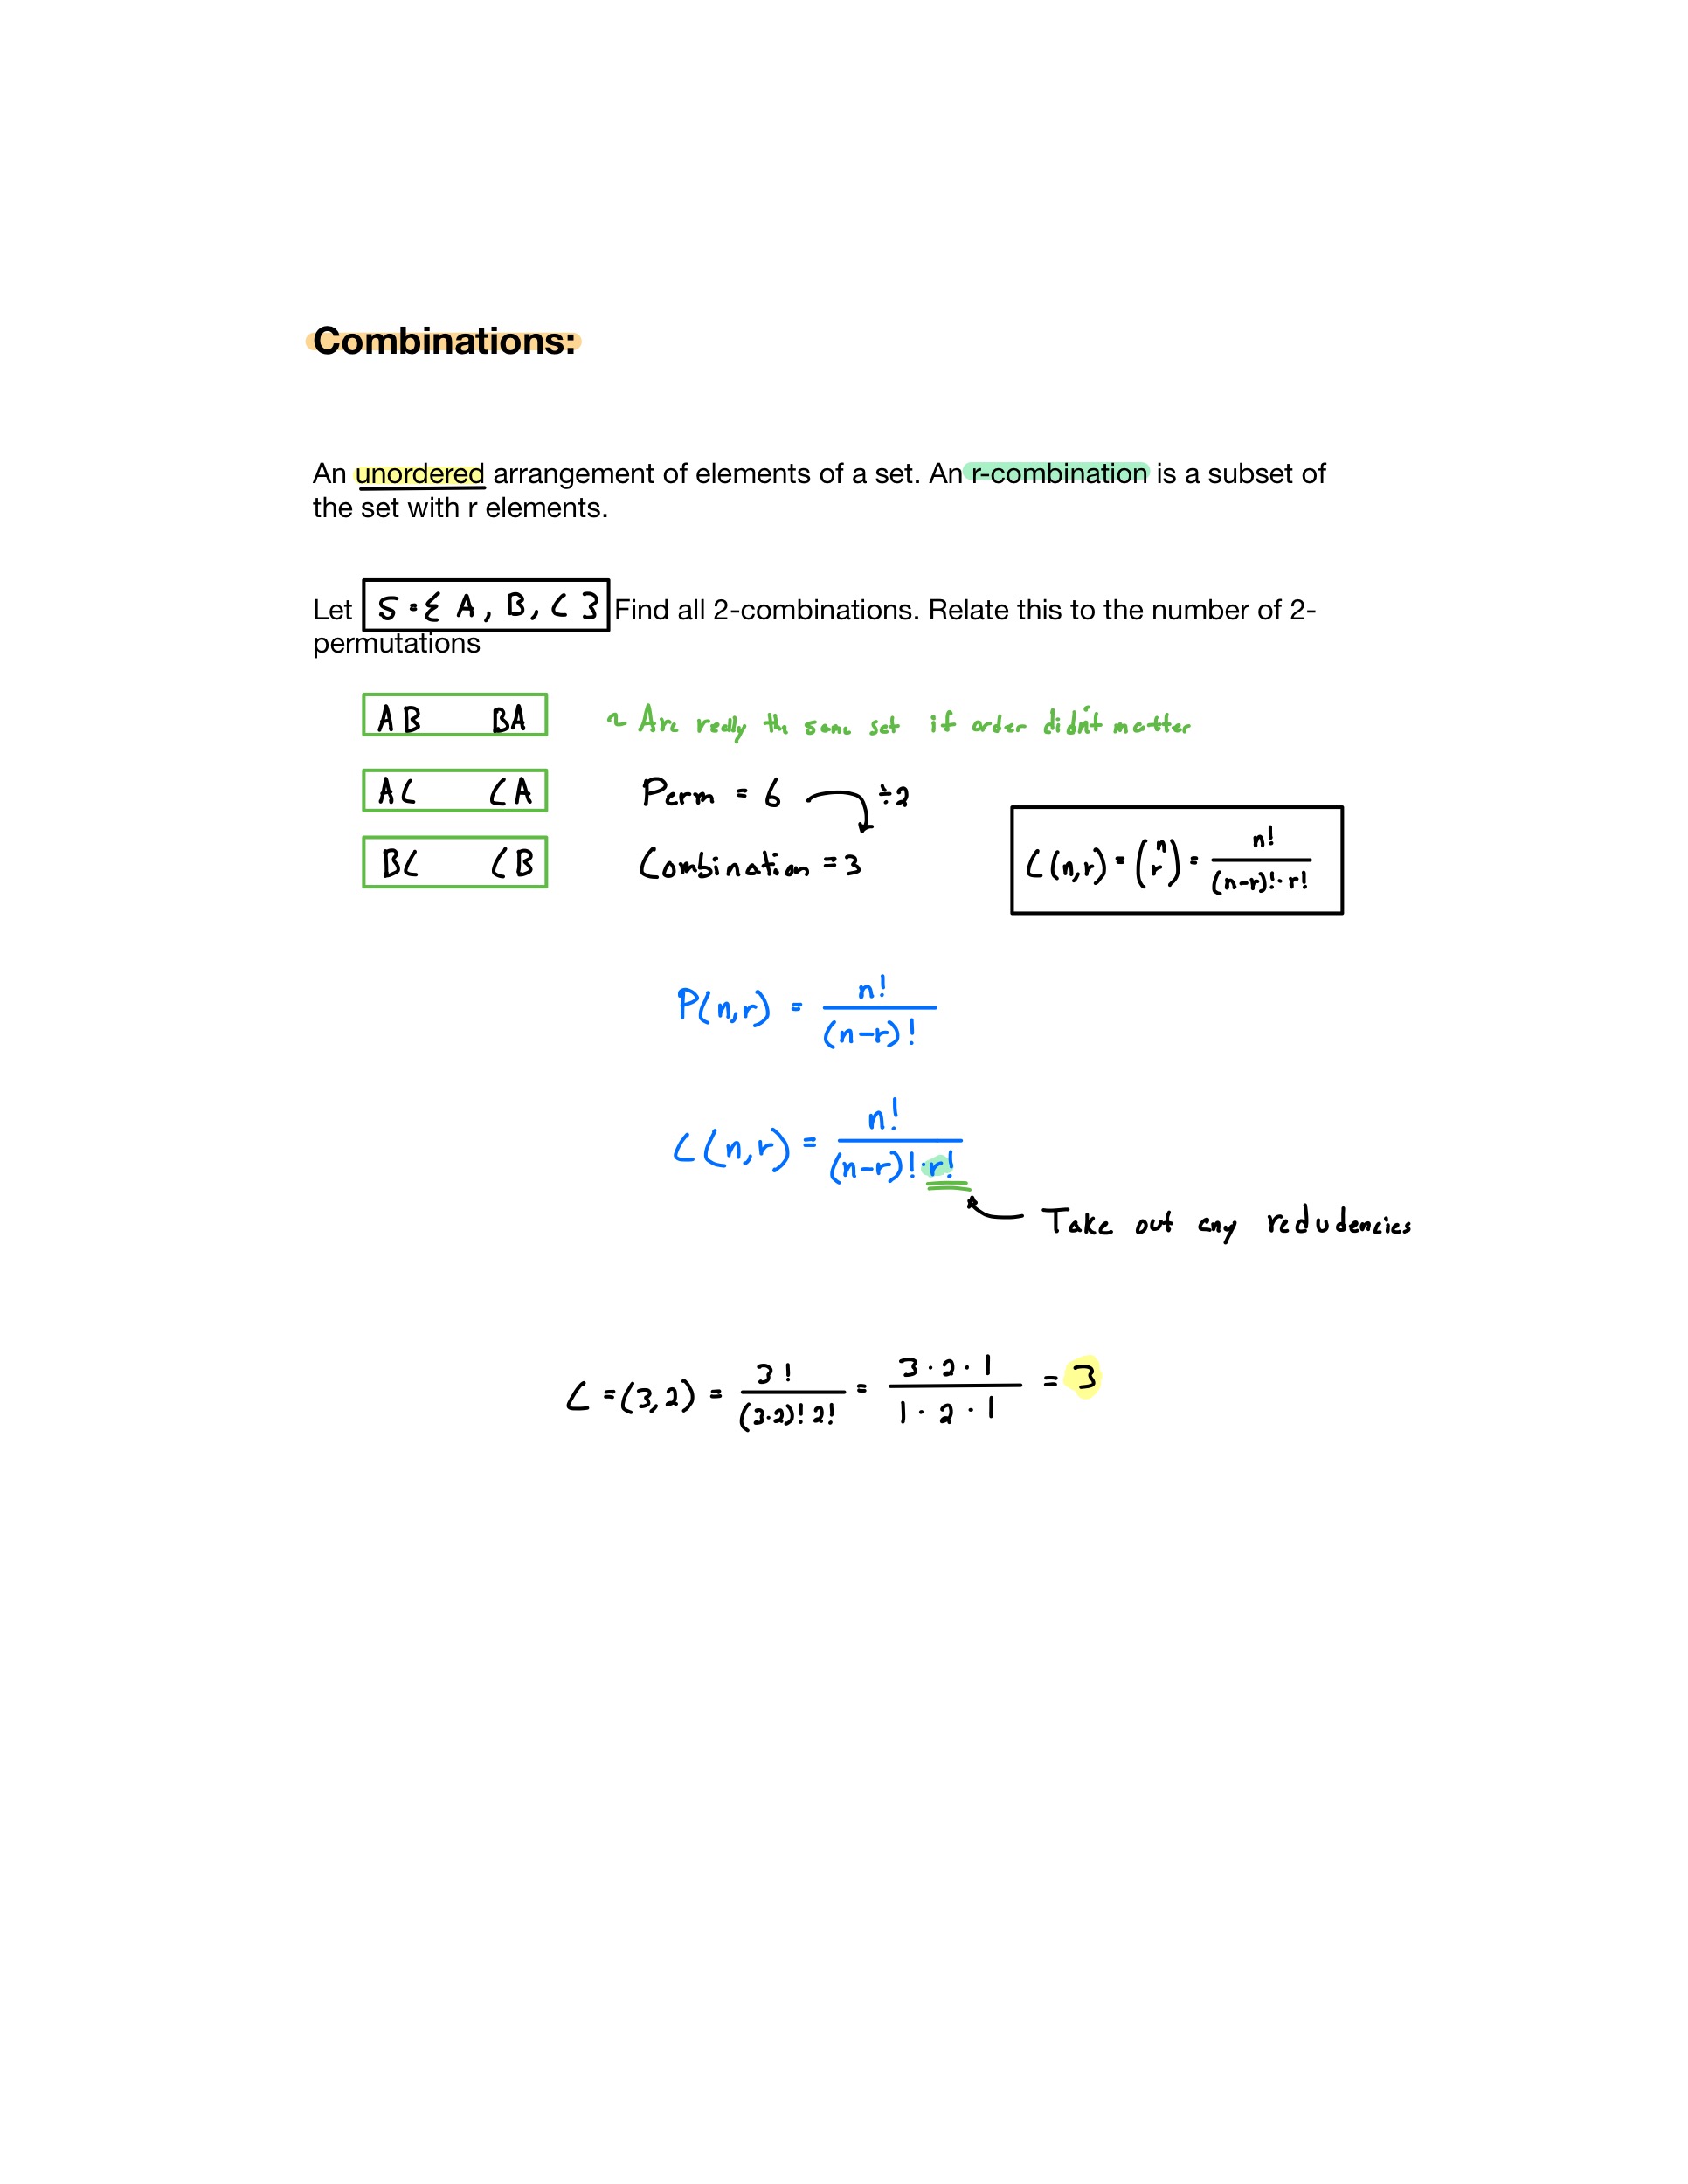 Combinations:
An unordered arrangement of elements of a set. An r-combination is a subset of
the set with r elements.
Let S = { A, B, C } Find all 2-combinations. Relate this to the number of 2-
permutations
AB BA ~ Are really the same set if order didn't matter
AC CA Perm = 6 ÷2
BC CB Combination = 3
C(n,r) = (n r) = n! / (n-r)!·r!
P(n,r) = n! / (n-r)!
C(n,r) = n! / (n-r)!·r!
Take out any redudencies
C =(3,2) = 3! / (3-2)! 2! = 3·2·1 / 1·2·1 = 3